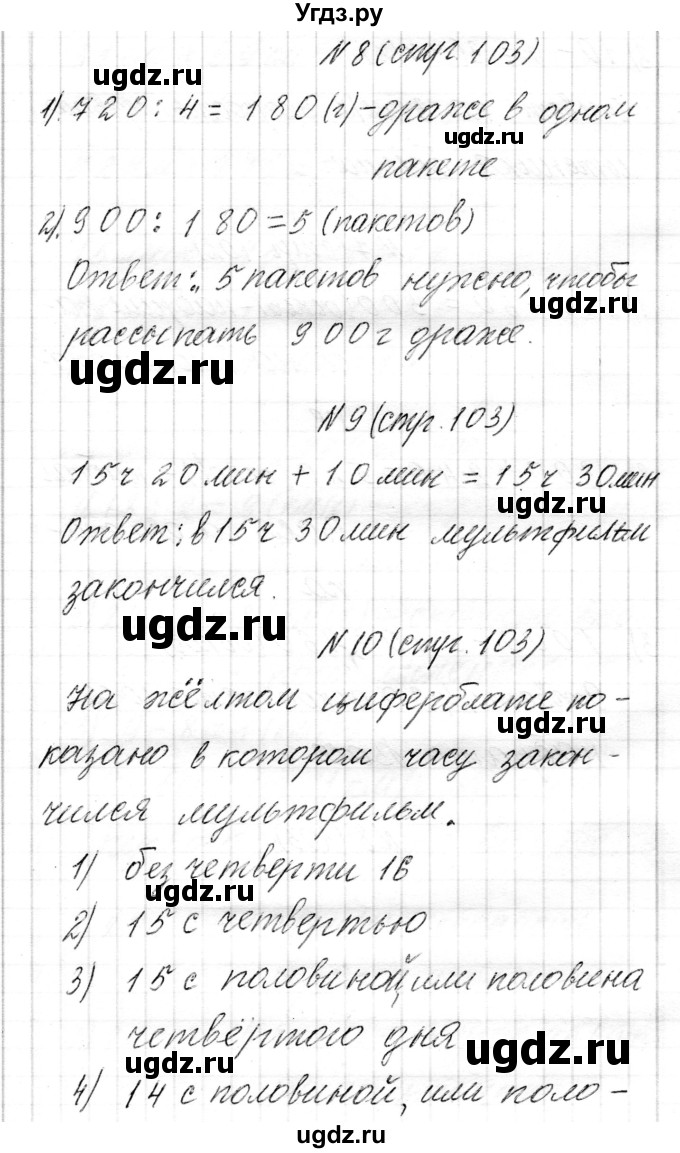 Угдз.ру
N8 (стр. 103)
ugdz.ru
1). 720 : 4 = 180 (г) - драже в одном
ugdz.ru
пакете
2). 900 : 180 = 5 (пакетов)
Ответ: 5 пакетов нужно, чтобы
ugdz.ru
рассыпать 900 г драже.
ugdz.ru
N9 (стр. 103)
15 ч 20 мин + 10 мин = 15 ч 30 мин
ugdz.ru
Ответ: в 15 ч 30 мин мультфильм
закончился.
ugdz.ru
N10 (стр. 103)
На жёлтом циферблате по-
ugdz.ru
казано в котором часу закон-
чился мультфильм.
1) без четверти 16
ugdz.ru
2) 15 с четвертью
3) 15 с половиной, или половина
четвёртого дня
ugdz.ru
ugdz.ru
4) 14 с половиной, или поло-
ugdz.ru
ugdz.ru